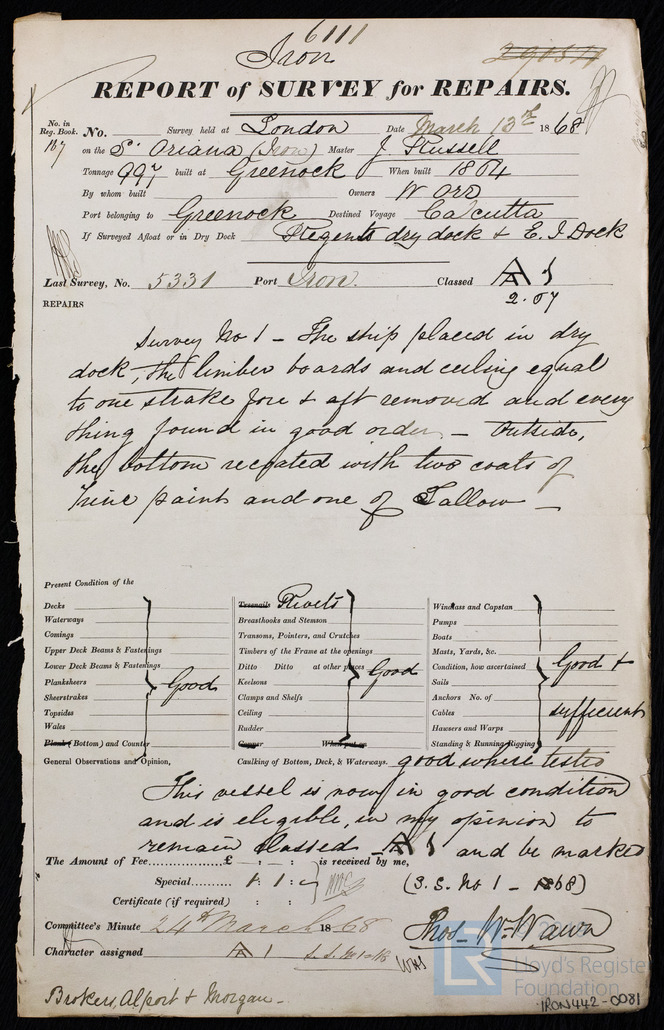 6111
Iron
REPORT of SURVEY for REPAIRS.
No. in Reg. Book. No. Survey held at London Date March 13th 1868
167 on the S. Oriana (Iron) Master J. Russell
Tonnage 997 built at Greenock When built 1864
By whom built Owners W Orr
Port belonging to Greenock Destined Voyage Calcutta
If Surveyed Afloat or in Dry Dock Regents dry dock & E. I Dock
Last Survey, No. 5331 Port Iron. Classed A 1
2.67
REPAIRS
Survey No 1 - The ship placed in dry
dock, the limber boards and ceiling equal
to one strake fore & aft removed and every
thing found in good order. - Outside,
the bottom recoated with two coats of
paint and one of Tallow -
Present Condition of the
Decks Treenails Rivets Windlass and Capstan
Waterways Breasthooks and Stemson Pumps
Comings Transoms, Pointers, and Crutches Boats
Upper Deck Beams & Fastenings Timbers of the Frame at the openings Masts, Yards, &c.
Lower Deck Beams & Fastenings Ditto Ditto at other places Good Condition, how ascertained Good &
Planksheers Good Keelsons Sails
Sheerstrakes Clamps and Shelfs Anchors No. of
Topsides Ceiling Cables sufficient
Wales Rudder Hawsers and Warps
Plank (Bottom) and Counter Copper When put on Standing & Running Rigging
General Observations and Opinion, Caulking of Bottom, Deck, & Waterways. good where tested
This vessel is now in good condition
and is eligible, in my opinion to
remain Classed A 1 and be marked
The Amount of Fee £ : : is received by me,
Special 1 : 1 : (S.S. No 1 - 68)
Certificate (if required) : :
Committee's Minute 24th March 1868
Thos. W. Wawn
Character assigned A 1 S.S. No 1-68
WHS
Lloyd's Register
Foundation
Brokers, Alport & Morgan -
IRON442-0081